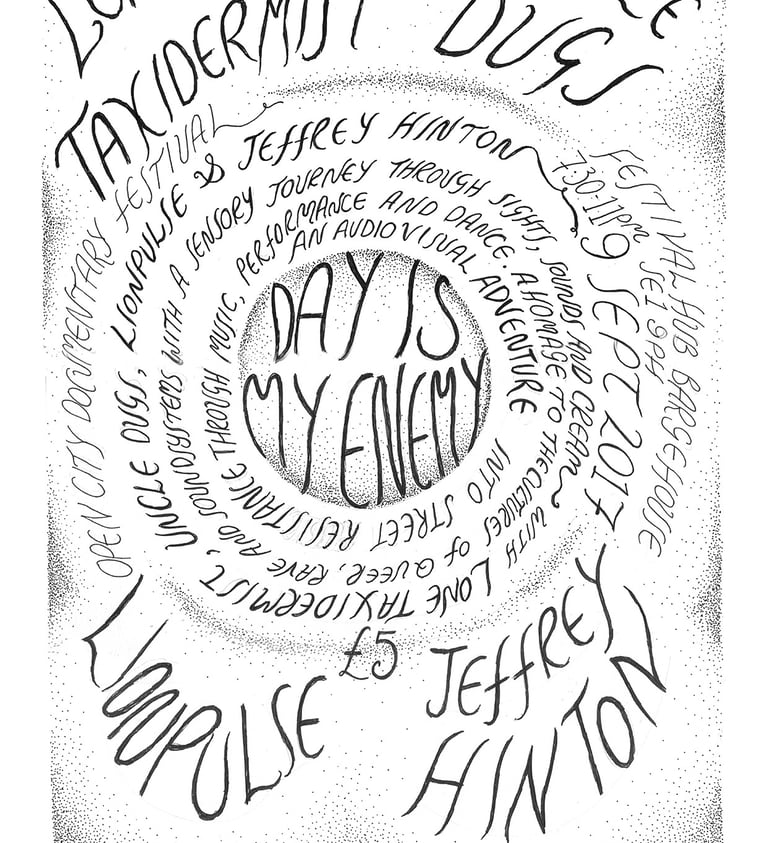 TAXIDERMIST
DUGS
OPEN CITY DOCUMENTARY FESTIVAL
DAY IS
MY ENEMY
AN AUDIO VISUAL ADVENTURE INTO STREET RESISTANCE THROUGH MUSIC, PERFORMANCE AND DANCE. A HOMAGE TO THE CULTURES OF QUEER, RAVE AND SOUNDSYSTEMS WITH A SENSORY JOURNEY THROUGH SIGHTS, SOUNDS AND CREAM WITH LONE TAXIDERMIST, UNCLE DUGS, LIONPULSE & JEFFREY HINTON
9 SEPT 2017
730-11PM
FESTIVAL HUB BARGEHOUSE
SE1 9PH
£5
LIONPULSE
JEFFREY
HINTON